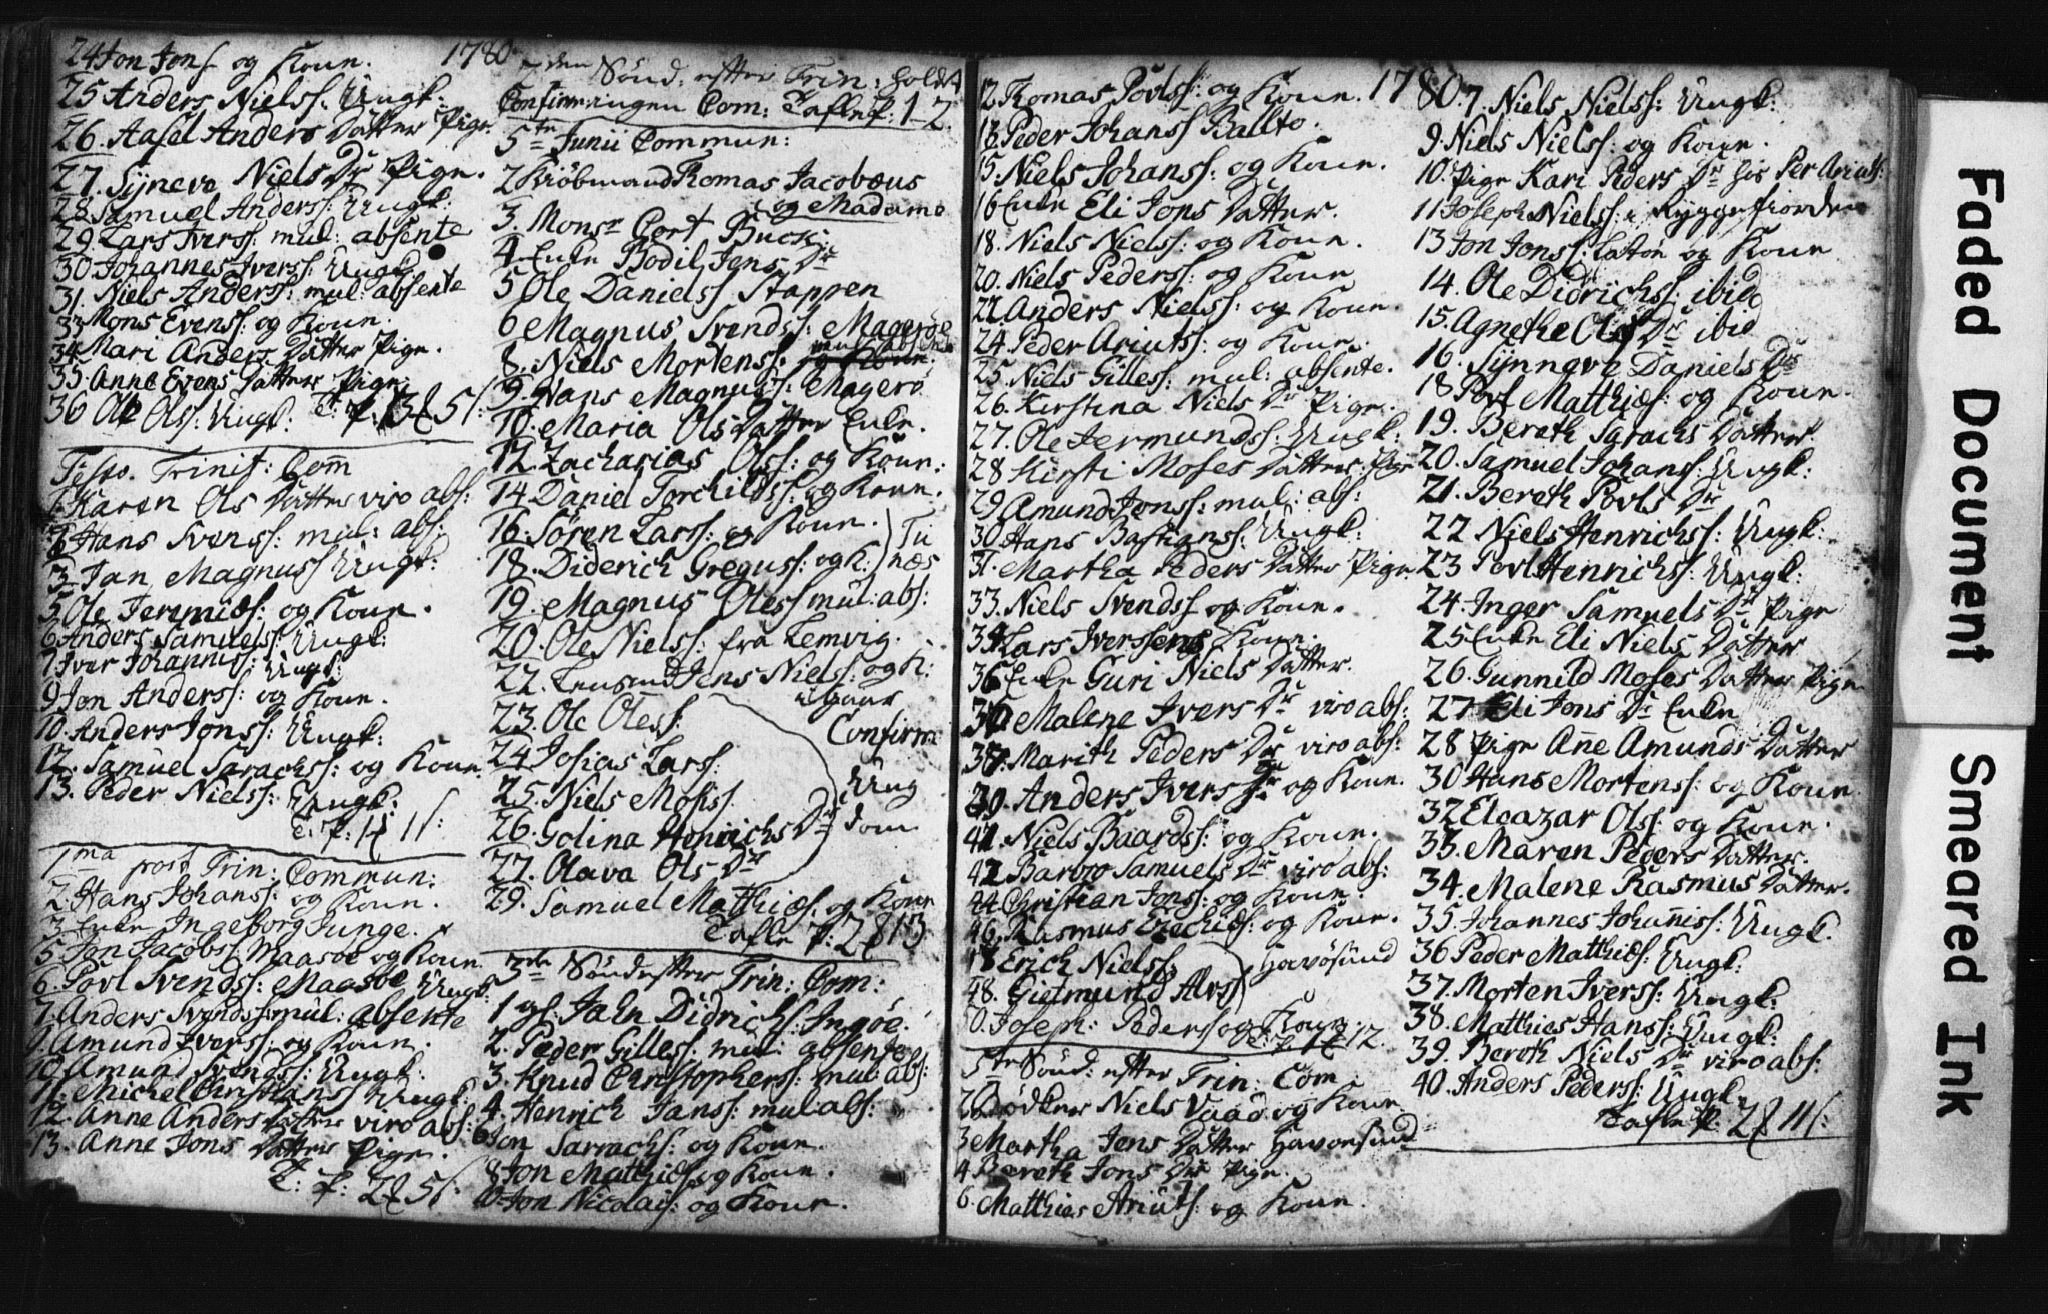 1780
24 Jon Jons og Kone.
25 Anders Nielss: Ungk:
26. Aasel Anders Datter Pige.
27. Syneve Niels Dr Pige.
28. Samuel Anderss: Ungk:
29. Lars Iverss: mul: absente
30 Johannes Iverss: Ungk:
31. Niels Anderss: mul: absente
33 Mons Evenss: og Kone.
34 Mari Anders Datter Pige.
35. Anne Evens Datter Pige.
36 Ole Olss: Ungk:
Festo. Trinit: Com
1. Karen Ols Datter viro abs:
2 Hans Svenss: mul: abs:
3 Jan Magnuss Ungk:
5 Ole Jeremiæs: og Kone.
6 Anders Samuelss: Ungk:
7 Iver Johanniss: Ungk:
9 Jon Anderss: og Kone.
10. Anders Jonss: Ungk:
12. Samuel Sarachss: og Kone
13. Peder Nielss: Ungk:
1ma post Trin: Commun:
2. Hans Johanss: og Kone.
3 Enke Ingeborg Junge.
5 Jon Jacobss Maasøe og Kone
6. Povl Svendss: Maasøe Ungk:
7. Anders Svendss: mul: absente
9. Amund Iverss: og Kone.
10 Amund Svendss: Ungk:
11. Michel Christianss Ungk:
12. Anne Anders Datter viro abs:
13. Anne Jons Datter Pige.
den Sönd: efter Trin: holdt
Confirmingen Com: Tafle 1-2
5te Junii Commun:
2 Kiøbmand Thomas Jacobæus
og Madame
3. Monsr Cort Buck
4. Enke Bodil Jens Dr
5 Ole Danielss Stappen
6 Magnus Svendss: Magerøe
8. Niels Mortenss: mul: absente
og Kone.
9. Hans Magnuss: Magerö
10. Maria Ols Datter Enke.
12. Zacharias Olss: og Kone.
14 Daniel Torchildss: og Kone.
16. Sören Larss: og Kone.
18. Diderich Greguss: og K:
Tu
næs
19. Magnus Oless mul: abs:
20. Ole Nielss: fra Lemvig.
22. Jens Nielss: og K:
23. Ole Oless:
24 Josias Larss:
25. Niels Mosiss.
26. Golina Henrichs Dr
27. Olava Ols Dr
Confirm:
Ung
dom
29. Samuel Matthiæs: og Kone
Tafle P: 28 13
3de Sönd efter Trin: Com:
1 gl: Jahn Didrichs: Ingöe.
2. Peder Gilless mul: absente
3. Knud Christopherss: mul: abs:
4. Henrich Janss: mul abs:
6 Jon Sarrachs: og Kone.
8 Jon Matthiæs og Kone.
10 Jon Nicolais: og Kone.
1780.
12. Thomas Povlss: og Kone.
13 Peder Johanss Ballto.
15. Niels Johanss: og Kone.
16 Enke Eli Jons Datter.
18. Niels Nielss: og Kone.
20. Niels Pederss: og Kone
22 Anders Nielss: og Kone.
24. Peder Ariutss: og Kone.
25. Niels Gilless: mul: absente.
26. Kirstina Niels Dr Pige.
27. Ole Jermundss: Ungk:
28 Kirsti Moses Datter Pige
29 Amund Jonss: mul: abs:
30 Hans Bastianss: Ungk:
31. Martha Peders Datter Pige.
33. Niels Svendss og Kone.
34 Lars Iverssen og Kone.
36 Enke Guri Niels Datter.
Malene Ivers Dr viro abs:
Marith Peders Dr viro abs:
Anders Iverss: og Kone.
41. Niels Baardss: og Kone.
42 Barbro Samuels Dr viro abs:
44 Christian Jonss: og Kone.
46. Rasmus Ezechiæs: og Kone.
Erich Nielss.
48. Gietmund Alvss
Havösund
50. Joseph: Pederss og Kone
5te Sönd: efter Trin: Com:
2 Bödker Niels Vaad og Kone
3 Martha Jens Datter Havøesund
4 Bereth Jons Dr Pige.
6. Matthias Ariuts: og Kone.
7. Niels Nielss: Ungk:
9. Niels Nielss: og Kone.
10. Pige Kari Peders Dr hos Per Ariuts:
11 Joseph Nielss: i Ryggefiorden
13 Jon Jonss: Latön og Kone
14. Ole Didrichss: ibid
15. Agnethe Ols Dr ibid
16. Synneve Daniels Dr
18 Povl Matthiæs: og Kone.
19. Bereth Sarachs Datter.
20. Samuel Johanss: Ungk:
21. Bereth Povls Dr
22 Niels Henrichss: Ungk:
23 Povl Henrichss: Ungk:
24. Inger Samuels Dr Pige
25 Enke Eli Niels Datter
26. Gunnild Moses Datter Pige
27 Eli Jons Dr Enke
28 Pige Añe Amunds Datter
30 Hans Mortenss: og Kone.
32 Eleazar Olss og Kone.
33. Maren Peders Datter.
34. Malene Rasmus Datter.
35. Johannes Johañiss: Ungk:
36 Peder Matthiæs: Ungk:
37. Morten Iverss: Ungk:
38. Matthias Hanss: Ungk:
39. Bereth Niels Dr viro abs:
40. Anders Pederss: Ungk:
Tafle P: 28 11s:
Faded Document
Smeared Ink